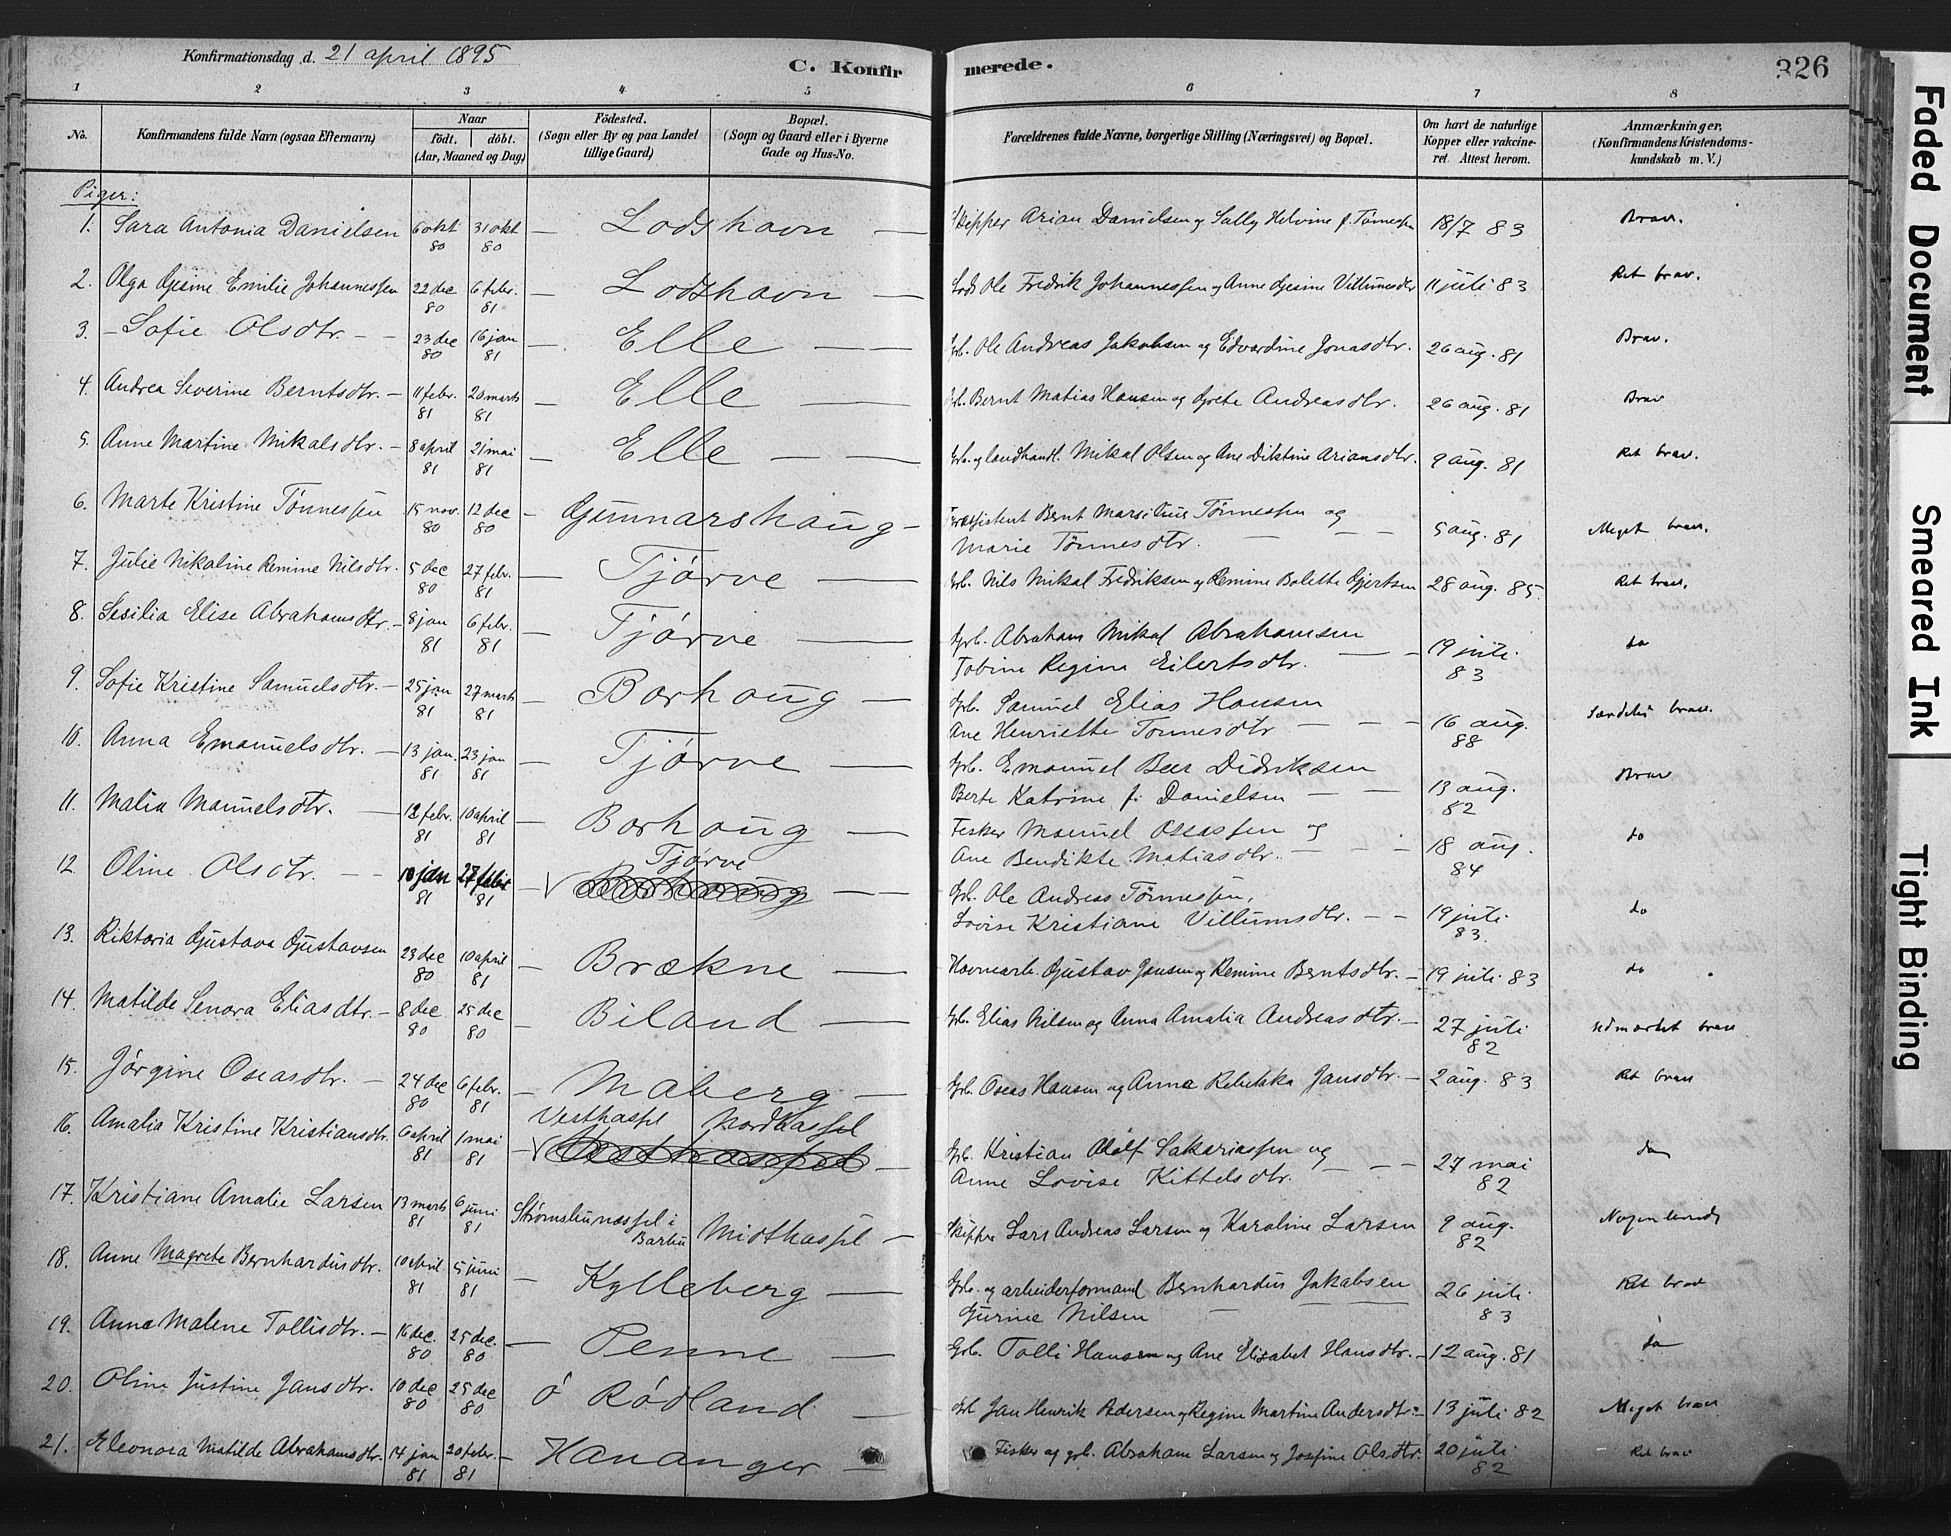 Konfirmationsdag d. 21 april 1895
C. Konfir
merede.
326
1 2 3 4 5 6 7 8
No.
Konfirmandens fulde Navn (ogsaa Efternavn)
Naar
født. døbt.
(Aar, Maaned og Dag)
Fødested.
(Sogn eller By og paa Landet
tillige Gaard)
Bopæl.
(Sogn og Gaard eller i Byerne
Gade og Hus-No.
Forældrenes fulde Navne, borgerlige Stilling (Næringsvei) og Bopæl.
Om havt de naturlige
Kopper eller vakcine-
ret. Attest herom.
Anmærkninger,
(Konfirmandens Kristendoms-
kundskab m. V.)
Piger:
1. Sara Antonia Danielsen 6 okt 80 31 okt 80 — Lodshavn — Skipper Arian Danielsen og Sally Helvine f. Tønnessen 18/7 83 Brav.
2. Olga Gjesine Emilie Johannessen 22 dec 80 6 febr. 81 — Lodshavn — Lods Ole Fredrik Johannessen og Anne Gjesine Villumsdtr 11 juli 83 Ret brav.
3. Sofie Olsdtr. 23 dec 80 16 jan 81 — Elle — Grb. Ole Andreas Jakobsen og Edvardine Jonasdtr. 26 aug. 81 Brav.
4. Andrea Severine Berntsdtr. 11 febr. 81 20 marts 81 — Elle — Grb. Bernt Matias Hansen og Grete Andreasdtr. 26 aug. 81 Brav
5. Anne Martine Mikalsdtr. 8 april 81 21 mai 81 — Elle — Grb. og landhandl. Mikal Olsen og Ane Diktine Ariansdtr. 9 aug. 81 Ret brav.
6. Marte Kristine Tønnessen 15 nov. 80 12 dec 80 — Gunnarshaug — Fyrassistent Bernt Marsilius Tønnessen og
Marie Tønnesdtr. 5 aug. 81 Meget brav.
7. Julie Nikoline Remine Nilsdtr. 5 dec 80 27 febr. 81 — Tjørve — Grb. Nils Mikal Fredriksen og Remine Bolette Gjertsen 28 aug. 85 Ret brav.
8. Sesilia Elise Abrahamsdtr. 8 jan 81 6 febr. 81 — Tjørve — Grb. Abraham Mikal Abrahamsen
Tobine Regine Eilertsdtr. 19 juli 83 do
9. Sofie Kristine Samuelsdtr. 25 jan 81 27 marts 81 — Borhaug — Grb. Samuel Elias Hansen
Ane Henriette Tønnesdtr 16 aug. 88 Særdeles brav.
10. Anna Emanuelsdtr. 13 jan. 81 23 jan 81 — Tjørve — Grb. Emanuel Beer Didriksen
Berte Katrine f. Danielsen 13 aug. 82 Brav
11. Malia Manuelsdtr. 12 febr. 81 10 april 81 — Borhaug — Fisker Manuel Oseassen og
Ane Bendikte Matiasdtr. 18 aug. 84 do
12 Oline Olsdtr. 10 jan 81 27 febr 81 — Tjørve — Grb. Ole Andreas Tønnessen,
Lovise Kristiane Villumsdtr. 19 juli 83 do
13. Riktoria Gustava Gustavsen 23 dec 80 10 april 81 — Brækne — Havnearb. Gustav Jansen og Remine Berntsdtr. 19 juli 83 do
14. Matilde Lenora Eliasdtr. 8 dec 80 25 dec 80 — Biland — Grb. Elias Nilsen og Anna Amalia Andreasdtr. 27 juli 82 Udmærket brav
15. Jørgine Oseasdtr. 24 dec 80 6 febr. 81 — Maberg — Grb. Oseas Hansen og Anna Rebekka Jansdtr. 2 aug. 83 Ret brav
16. Amalia Kristine Kristiansdtr. 6 april 81 1 mai 81 — Vesthassel Nordhassel — Grb. Kristian Adolf Sakariassen og
Anne Lovise Kittelsdtr. 27 mai 82 do
17. Kristiane Amalie Larsen 13 marts 81 6 juni 81 i Barbu Midthassel — Skipper Lars Andreas Larsen og Karoline Larsen 9 aug. 82
18. Anne Magrete Bernhardusdtr. 10 april 81 5 juni 81 — Kylleberg — Grb. og arbeiderformand Bernhardus Jakobsen
Gurine Nilsen 26 juli 83 Ret brav
19. Anne Malene Tollisdtr. 16 dec. 80 25 dec. 80 — Penne — Grb. Tolli Hansen og Ane Elisabet Hansdtr. 12 aug. 81 do
20. Oline Justine Jansdtr. 10 dec 80 25 dec 80 Ø Rødland — Grb Jan Henrik Pedersen og Regine Martine Andersdtr. 13 juli 82 Meget brav
21. Eleonora Matilde Abrahamsdtr. 14 jan 81 20 febr. 81 — Hananger Fisker og grb. Abraham Larsen og Josefine Olsdtr. 20 juli 82 Ret brav
Faded Document
Smeared Ink
Tight Binding